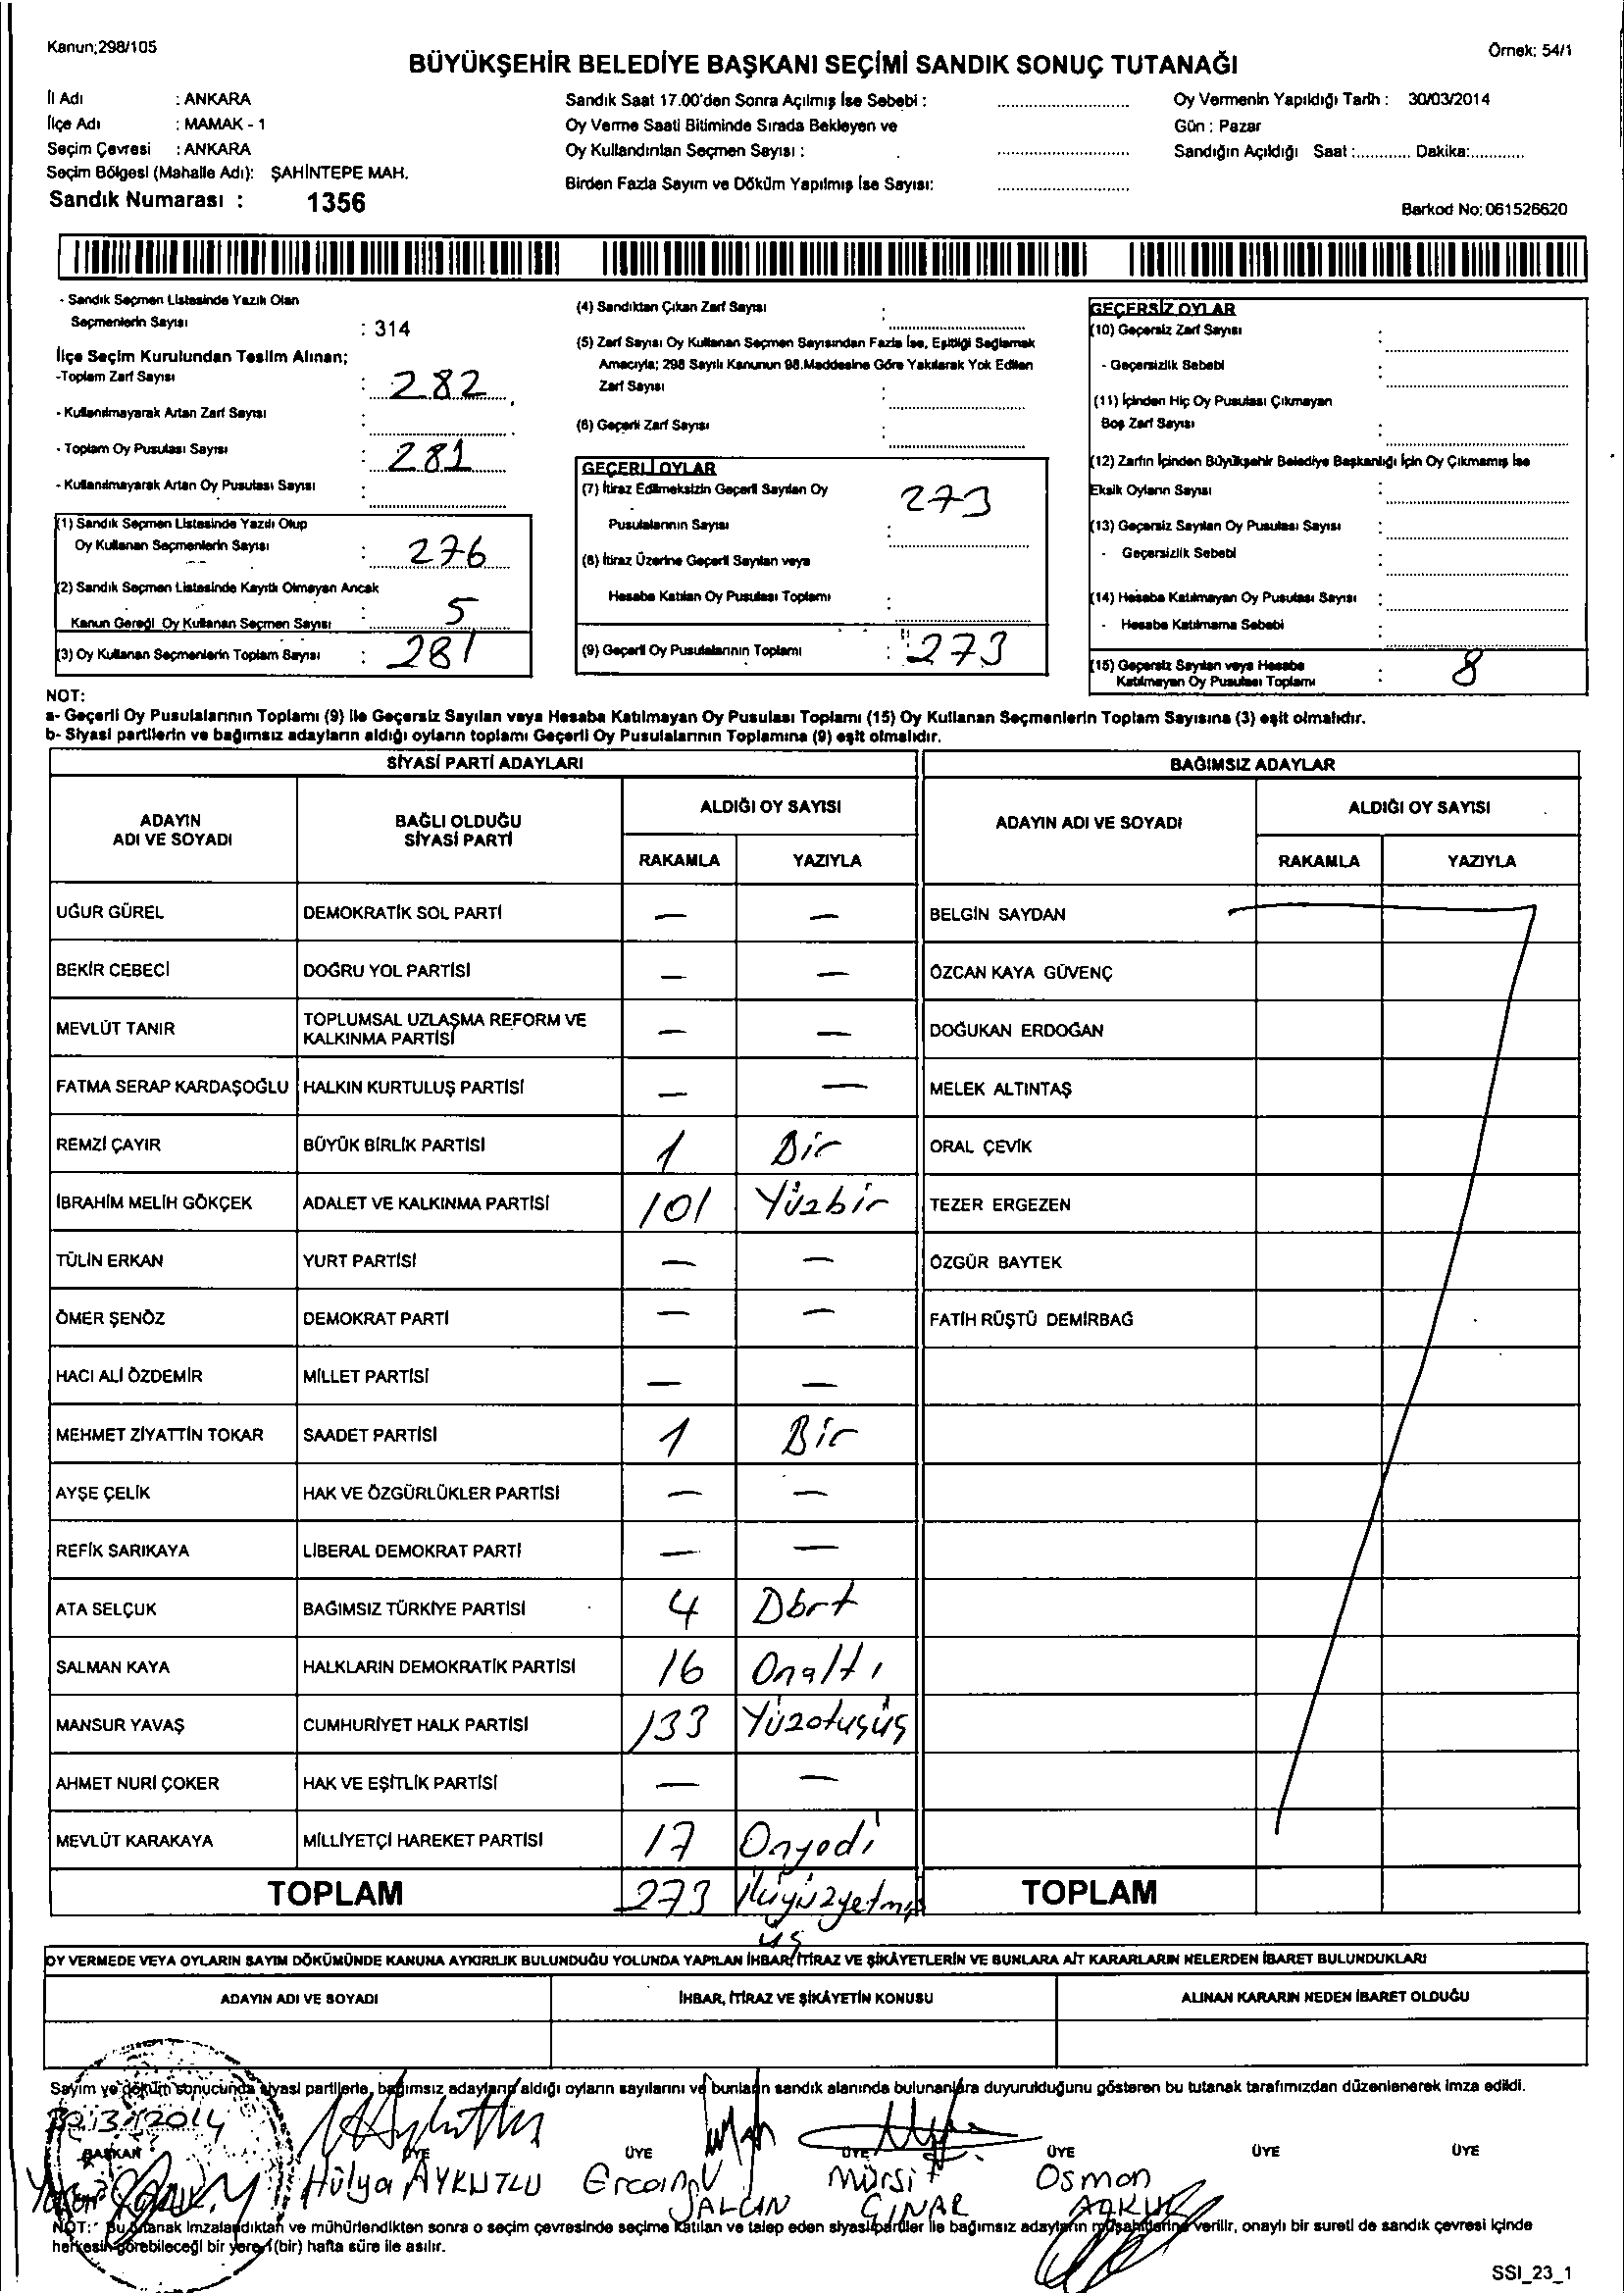 Kanun;298/105
Örnek: 54/1
BÜYÜKŞEHİR BELEDİYE BAŞKANI SEÇİMİ SANDIK SONUÇ TUTANAĞI
İl Adı : ANKARA
İlçe Adı : MAMAK - 1
Seçim Çevresi : ANKARA
Seçim Bölgesi (Mahalle Adı): ŞAHİNTEPE MAH.
Sandık Numarası : 1356
Sandık Saat 17.00'den Sonra Açılmış İse Sebebi :
Oy Verme Saati Bitiminde Sırada Bekleyen ve
Oy Kullandırılan Seçmen Sayısı :
Birden Fazla Sayım ve Döküm Yapılmış İse Sayısı:
Oy Vermenin Yapıldığı Tarih : 30/03/2014
Gün : Pazar
Sandığın Açıldığı Saat :............ Dakika:............
Barkod No: 061526620
- Sandık Seçmen Listesinde Yazılı Olan
Seçmenlerin Sayısı : 314
İlçe Seçim Kurulundan Teslim Alınan;
-Toplam Zarf Sayısı : 282
- Kullanılmayarak Artan Zarf Sayısı :
- Toplam Oy Pusulası Sayısı : 281
- Kullanılmayarak Artan Oy Pusulası Sayısı :
(1) Sandık Seçmen Listesinde Yazılı Olup
Oy Kullanan Seçmenlerin Sayısı : 276
(2) Sandık Seçmen Listesinde Kayıtlı Olmayan Ancak
Kanun Gereği Oy Kullanan Seçmen Sayısı : 5
(3) Oy Kullanan Seçmenlerin Toplam Sayısı : 281
(4) Sandıktan Çıkan Zarf Sayısı :
(5) Zarf Sayısı Oy Kullanan Seçmen Sayısından Fazla İse, Eşitliği Sağlamak
Amacıyla; 298 Sayılı Kanunun 98.Maddesine Göre Yakılarak Yok Edilen
Zarf Sayısı :
(6) Geçerli Zarf Sayısı :
GEÇERLİ OYLAR
(7) İtiraz Edilmeksizin Geçerli Sayılan Oy
Pusulalarının Sayısı : 273
(8) İtiraz Üzerine Geçerli Sayılan veya
Hesaba Katılan Oy Pusulası Toplamı :
(9) Geçerli Oy Pusulalarının Toplamı : 273
GEÇERSİZ OYLAR
(10) Geçersiz Zarf Sayısı :
- Geçersizlik Sebebi :
(11) İçinden Hiç Oy Pusulası Çıkmayan
Boş Zarf Sayısı :
(12) Zarfın İçinden Büyükşehir Belediye Başkanlığı İçin Oy Çıkmamış İse
Eksik Oyların Sayısı :
(13) Geçersiz Sayılan Oy Pusulası Sayısı :
- Geçersizlik Sebebi :
(14) Hesaba Katılmayan Oy Pusulası Sayısı :
- Hesaba Katılmama Sebebi :
(15) Geçersiz Sayılan veya Hesaba
Katılmayan Oy Pusulası Toplamı : 8
NOT:
a- Geçerli Oy Pusulalarının Toplamı (9) ile Geçersiz Sayılan veya Hesaba Katılmayan Oy Pusulası Toplamı (15) Oy Kullanan Seçmenlerin Toplam Sayısına (3) eşit olmalıdır.
b- Siyasi partilerin ve bağımsız adayların aldığı oyların toplamı Geçerli Oy Pusulalarının Toplamına (9) eşit olmalıdır.
SİYASİ PARTİ ADAYLARI
BAĞIMSIZ ADAYLAR
ADAYIN ADI VE SOYADI
BAĞLI OLDUĞU SİYASİ PARTİ
ALDIĞI OY SAYISI
RAKAMLA YAZIYLA
ADAYIN ADI VE SOYADI
ALDIĞI OY SAYISI
RAKAMLA YAZIYLA
UĞUR GÜREL DEMOKRATİK SOL PARTİ — — BELGİN SAYDAN
BEKİR CEBECİ DOĞRU YOL PARTİSİ — — ÖZCAN KAYA GÜVENÇ
MEVLÜT TANIR TOPLUMSAL UZLAŞMA REFORM VE KALKINMA PARTİSİ — — DOĞUKAN ERDOĞAN
FATMA SERAP KARDAŞOĞLU HALKIN KURTULUŞ PARTİSİ — — MELEK ALTINTAŞ
REMZİ ÇAYIR BÜYÜK BİRLİK PARTİSİ 1 Bir ORAL ÇEVİK
İBRAHİM MELİH GÖKÇEK ADALET VE KALKINMA PARTİSİ 101 Yüzbir TEZER ERGEZEN
TÜLİN ERKAN YURT PARTİSİ — — ÖZGÜR BAYTEK
ÖMER ŞENÖZ DEMOKRAT PARTİ — — FATİH RÜŞTÜ DEMİRBAĞ
HACI ALİ ÖZDEMİR MİLLET PARTİSİ — —
MEHMET ZİYATTİN TOKAR SAADET PARTİSİ 1 Bir
AYŞE ÇELİK HAK VE ÖZGÜRLÜKLER PARTİSİ — —
REFİK SARIKAYA LİBERAL DEMOKRAT PARTİ — —
ATA SELÇUK BAĞIMSIZ TÜRKİYE PARTİSİ 4 Dört
SALMAN KAYA HALKLARIN DEMOKRATİK PARTİSİ 16 Onaltı
MANSUR YAVAŞ CUMHURİYET HALK PARTİSİ 133 Yüzotuşüş
AHMET NURİ ÇOKER HAK VE EŞİTLİK PARTİSİ — —
MEVLÜT KARAKAYA MİLLİYETÇİ HAREKET PARTİSİ 17 Onyedi
TOPLAM 273 TOPLAM
OY VERMEDE VEYA OYLARIN SAYIM DÖKÜMÜNDE KANUNA AYKIRILIK BULUNDUĞU YOLUNDA YAPILAN İHBAR, İTİRAZ VE ŞİKÂYETLERİN VE BUNLARA AİT KARARLARIN NELERDEN İBARET BULUNDUKLARI
ADAYIN ADI VE SOYADI İHBAR, İTİRAZ VE ŞİKÂYETİN KONUSU ALINAN KARARIN NEDEN İBARET OLDUĞU
Sayım ve döküm sonucunda siyasi partilerle, bağımsız adayların aldığı oyların sayılarını ve bunların sandık alanında bulunanlara duyurulduğunu gösteren bu tutanak tarafımızdan düzenlenerek imza edildi.
BAŞKAN ÜYE ÜYE ÜYE ÜYE ÜYE ÜYE
Hülya AYKUTLU Ercan YALÇIN Mürsit ÇINAR Osman
NOT: Bu tutanak imzalandıktan ve mühürlendikten sonra o seçim çevresinde seçime katılan ve talep eden siyasi partiler ile bağımsız adayların müşahitlerine verilir, onaylı bir sureti de sandık çevresi içinde
herkesin görebileceği bir yere 1 (bir) hafta süre ile asılır.
SSI_23_1